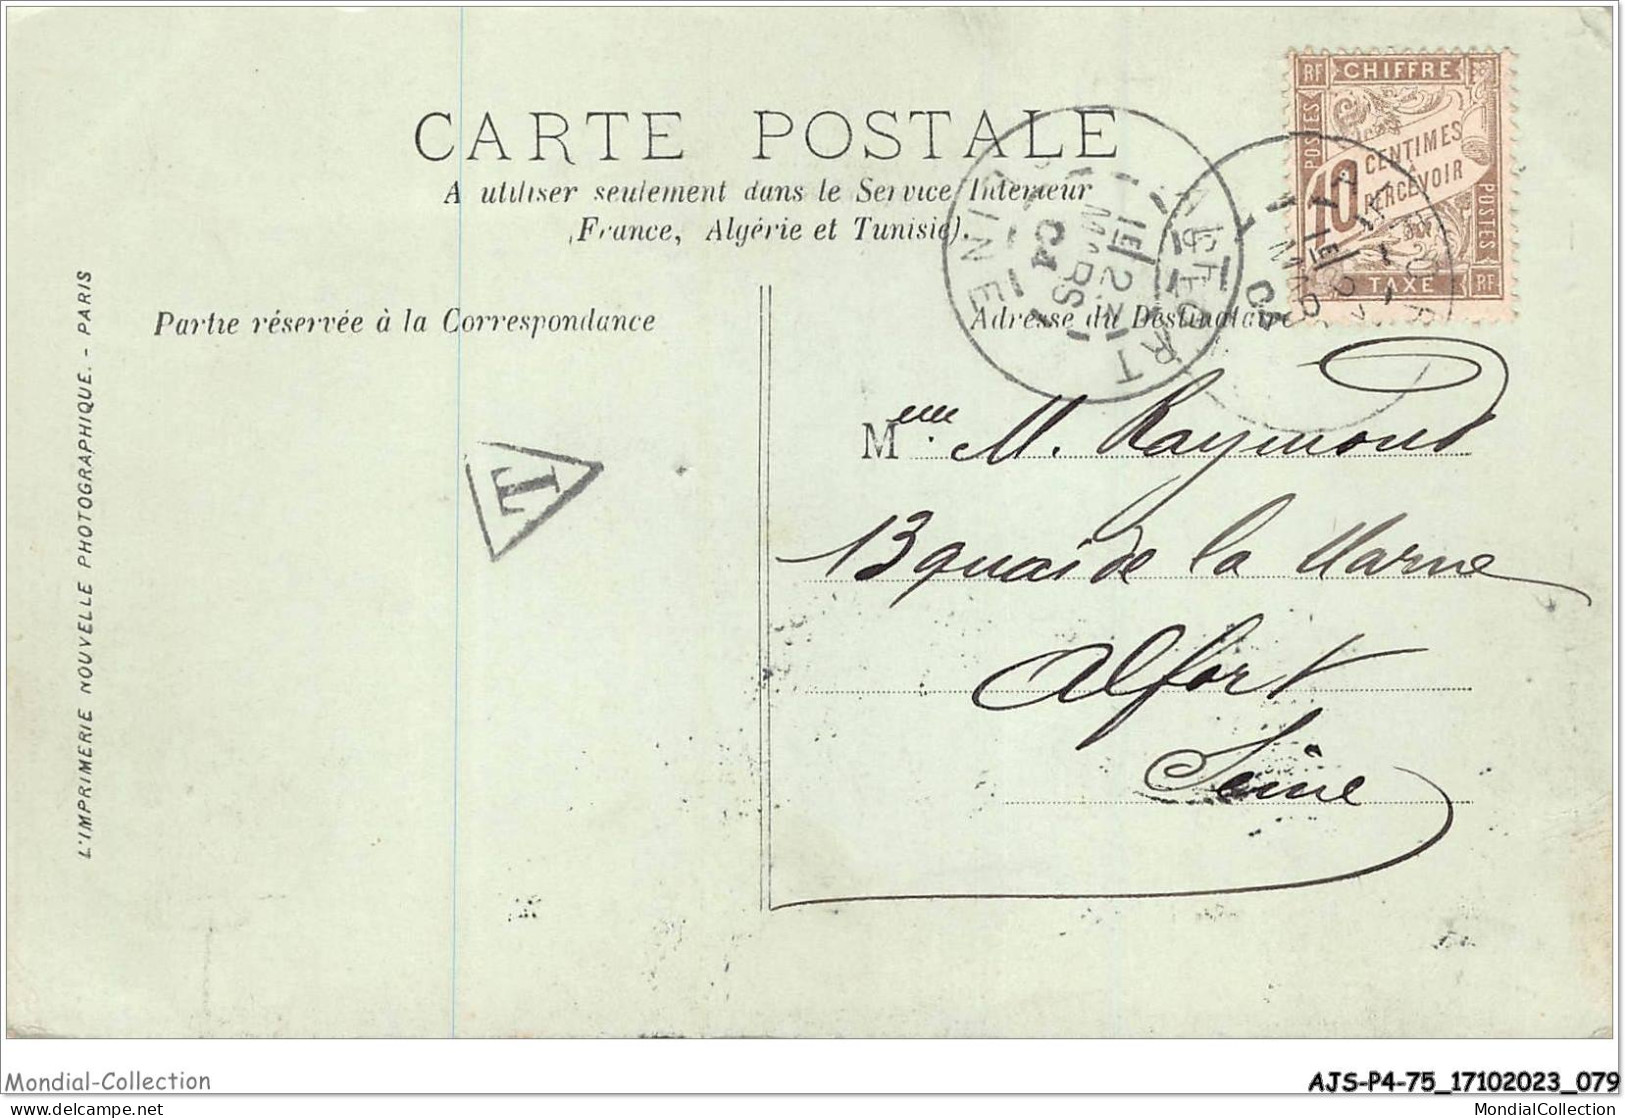 CARTE POSTALE
A utiliser seulement dans le Service Intérieur
(France, Algérie et Tunisie).
Partie réservée à la Correspondance
Adresse du Destinataire
L'IMPRIMERIE NOUVELLE PHOTOGRAPHIQUE. - PARIS
RF CHIFFRE
POSTES
10 CENTIMES
A PERCEVOIR
POSTES
TAXE RF
ALFORT
SEINE
1E / 2
MARS
04
T
Mme. M. Raymond
13 quai de la Marne
Alfort
Seine
Mondial-Collection
AJS-P4-75_17102023_079
delcampe.net
MondialCollection